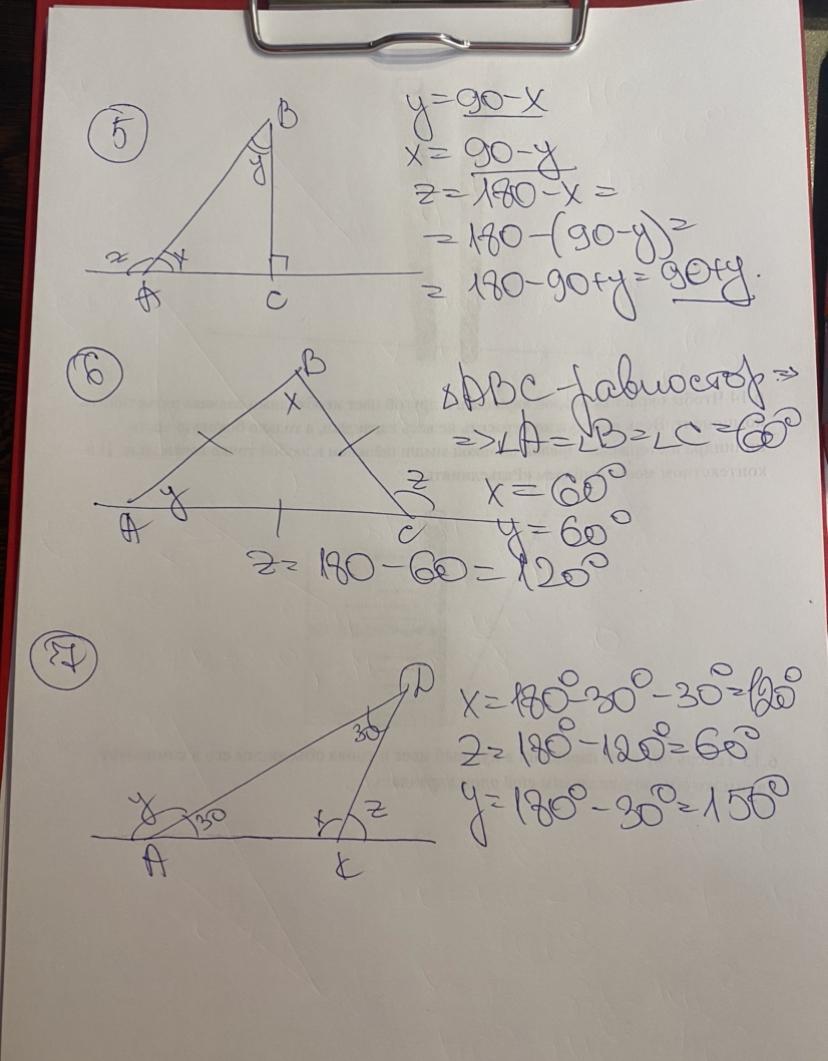 5
B
y
z
x
A
C
y=90-x
x=90-y
z=180-x=
=180-(90-y)=
=180-90+y=90+y.
6
B
x
y
z
A
C
△ABC-равностор⇒
⇒∠A=∠B=∠C=60°
x=60°
y=60°
z=180-60=120°
7
D
30
y
30
x
z
A
K
x=180°-30°-30°=120°
z=180°-120°=60°
y=180°-30°=150°